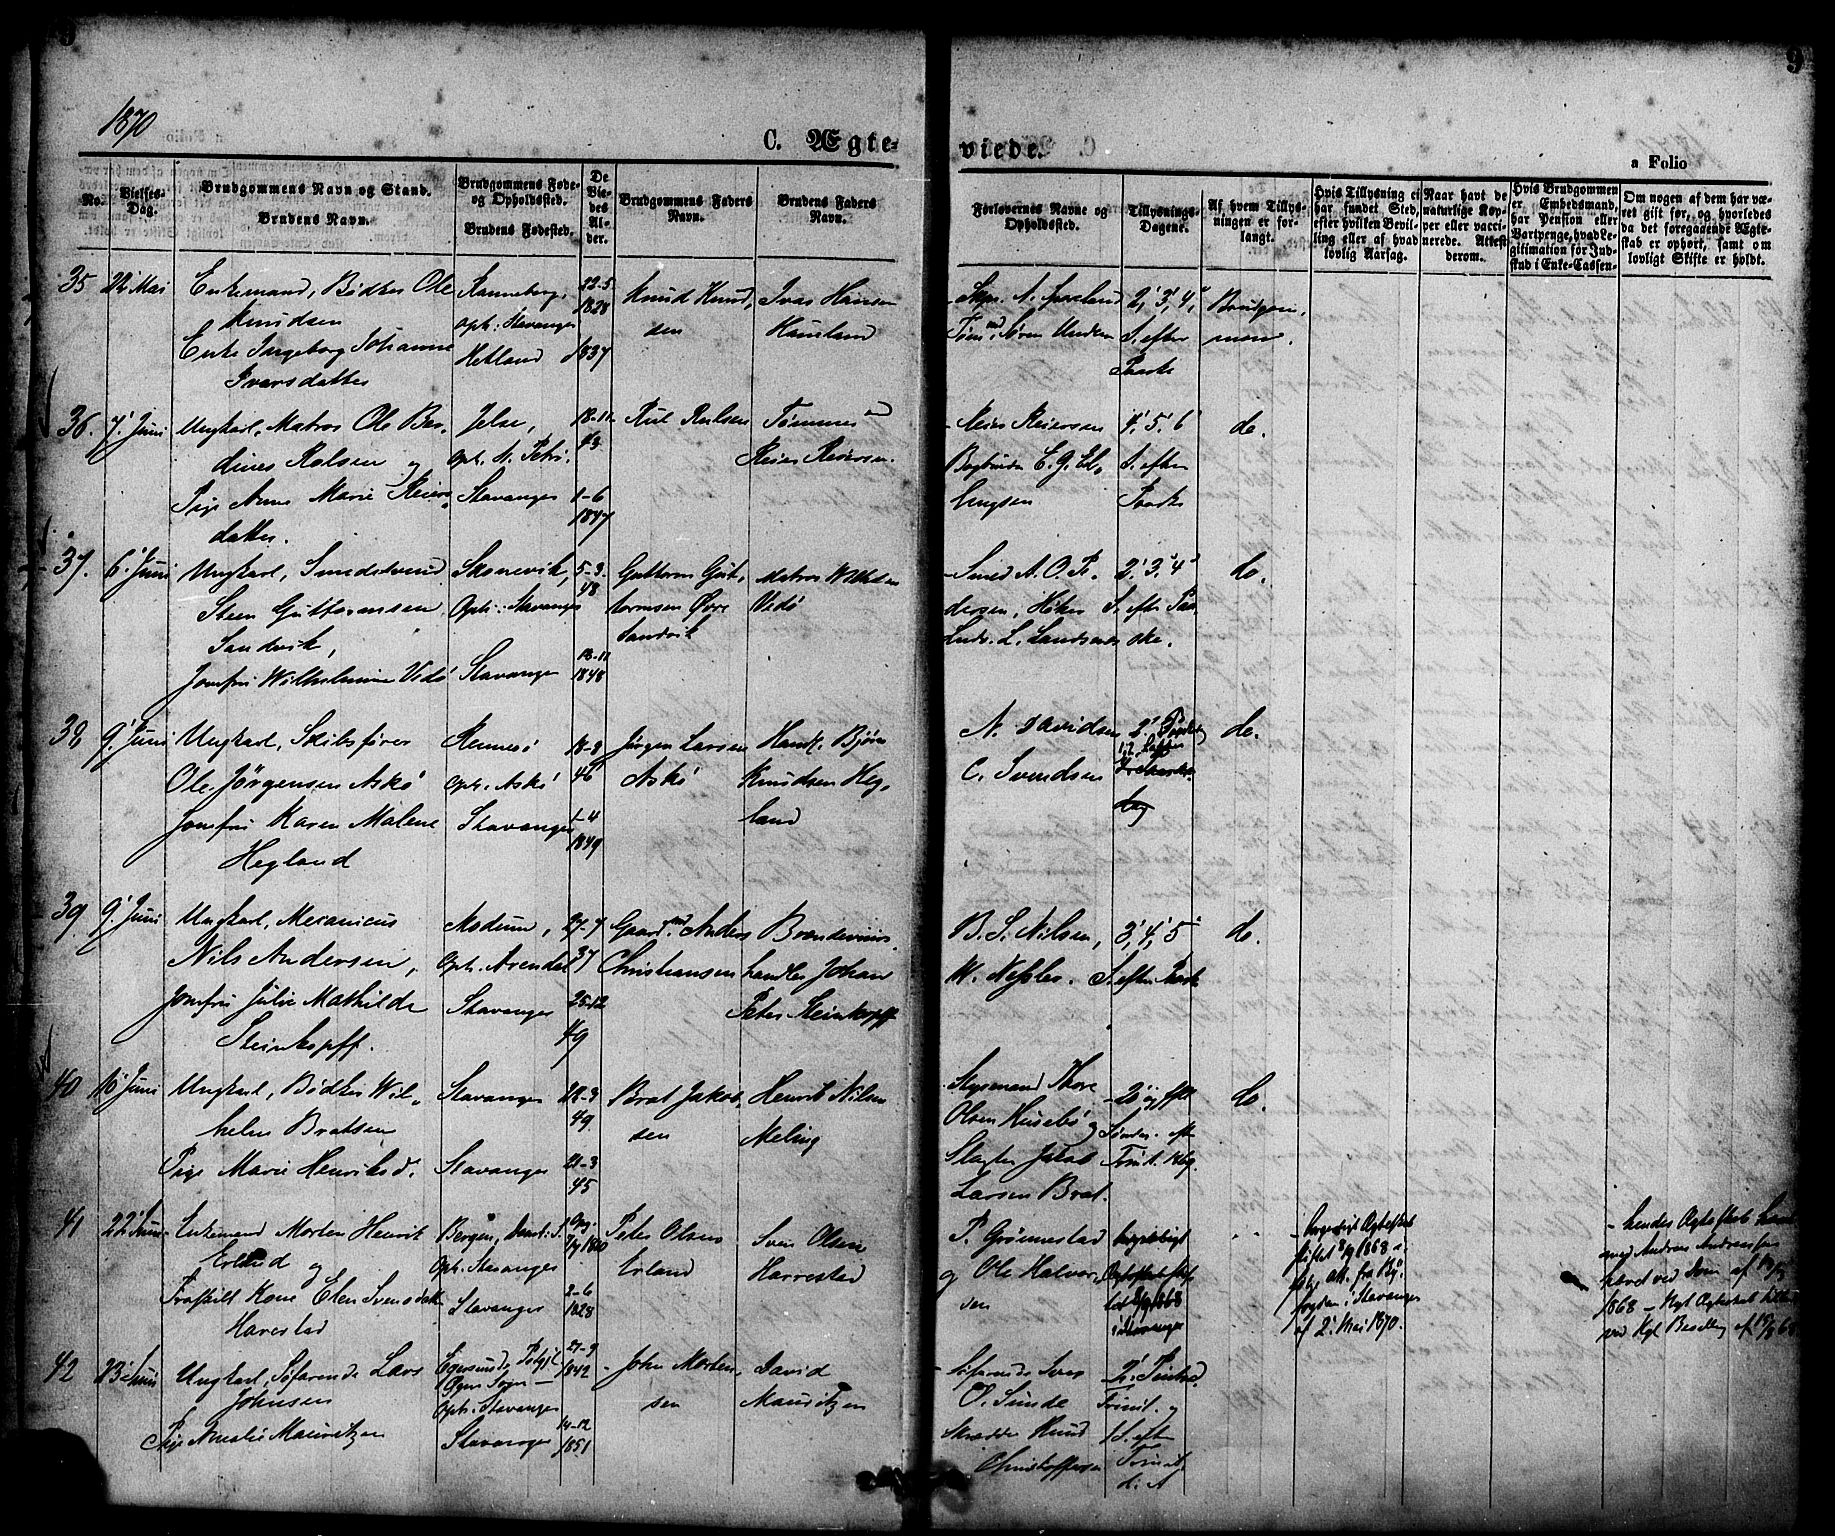 9
1870
C. Ægte-
viede.
a Folio
No.
Vielses-
Dag.
Brudgommens Navn og Stand.
Brudens Navn.
Brudgommens Føde-
og Opholdssted.
Brudens Fødested.
De
Vie-
des
Al-
der.
Brudgommens Faders
Navn.
Brudens Faders
Navn.
Forlovernes Navne og
Opholdssted.
Tillysnings-
Dagene.
Af hvem Tillys-
ningen er for-
langt.
Hvis Tillysning ei
har fundet Sted,
efter hvilken Bevil-
ling eller af hvad
lovlig Aarsag.
Naar havt de
naturlige Kop-
per eller vacci-
nerede. Attest
derom.
Hvis Brudgommen
er Embedsmand,
har Pension eller
Vartpenge, hvad Le-
gitimation for Ind-
skud i Enke-Cassen-
Om nogen af dem har væ-
ret gift før, og hvorledes
da det foregaaende Ægte-
skab er ophørt, samt om
lovligt Skifte er holdt.
35 24 Mai
Enkemand, Bødker Ole
Knudsen
Enke Ingeborg Johanne
Ivarsdatter
Oph. Stavanger
Hetland
22-5
1828
1837
Knud Knud,
sen
Ivar Hansen
Hauland
Tøm. Søren
2', 3', 4',
S. efter
Paaske
Brudgom,
men.
36. 7' Juni
Ungkarl, Matros Ole Ber
dines Rolsen og
Pige Anne Marie Reiers
datter.
Jelse,
Oph. St. Petri.
Stavanger
18-11
43
1-6
1847
Tømmermd
Reier Reiersen.
Reier Reiersen
Bogbinder E. G. El,
lingsen
4', 5', 6'
S. efter
Paaske
do.
37. 6' Juni
Ungkarl, Smedsvend
Steen Guttormsen
Sandvik,
Jomfru Wilhelmine Vedø
Skonevik,
Oph. Stavanger
Stavanger
5-3
48
18-11
1848
Guttorm Gut,
tormsen Øvre
Sandvik
Matros Wilhelm
Vedø
Smed A. O. Pe
dersen, Høker
Ludv. L. Landsnes
2', 3', 4'
S. efter Paa
ske.
do.
38 9' Juni
Ungkarl, Skibsfører
Ole Jörgensen Askö
Jomfru Karen Malene
Hegland
Rennesö
Oph. Askö
Stavanger
18-8
46
1-4
1849
Jörgen Larsen
Askö
Hand. Björn
Knudsen Heg,
land
N. Davidsen
C. Svendsen
do.
39 9' Juni
Ungkarl, Mecanicus
Nils Andersen,
Jomfru Julie Mathilde
Steinkopff.
Modum,
Oph. Arendal
Stavanger
27-7
37
25-12
49
Gaardmd Anders
Christiansen
Brændeviins,
handler Johan
Peter Steinkopff
B. S. Nilsen,
W. Nessler.
3', 4', 5'
S. efter Paaske
do.
40 16 Juni
Ungkarl, Bødker Wil,
helm Bratsen
Pige Marie Henriksd.
Stavanger
Stavanger
22-3
49.
21-3
45
Brat Jakob,
sen
Henrik Nilsen
Meling
Styrmand Thore
Olsen Husebö og
Slagter Jakob
Larsen Brat.
do.
41 22' Juni
Enkemand Morten Henrik
Erland og
Fraskilt Kone Elen Svensdatter
Harestad
Bergen,
Oph. Stavanger
Stavanger
2-6
1828
Peter Olsen
Erland
Sven Olsen
Harrestad
P. Grönnestad
og Ole Halvor
sen
borgerligt Ægteskab
sluttet 1868
att. fra By,
fogden i Stavanger
af 2' Mai 1870.
- hendes Ægteskab
med Andreas Andreassen
hævet ved Dom af
1868 - Nyt Ægteskab
ved Kgl Bevilling af
42 23' Juni
Ungkarl, Söfarende Lars
Johnsen
Pige Amalie Mauritzen
Egersund,
Oph. Stavanger
Stavanger
27-9
1842
14-12
1851
John Morten,
sen
David
Mauritzen
Söfarende Sven
O. Sunde
Skrædder Knud
Christoffersen